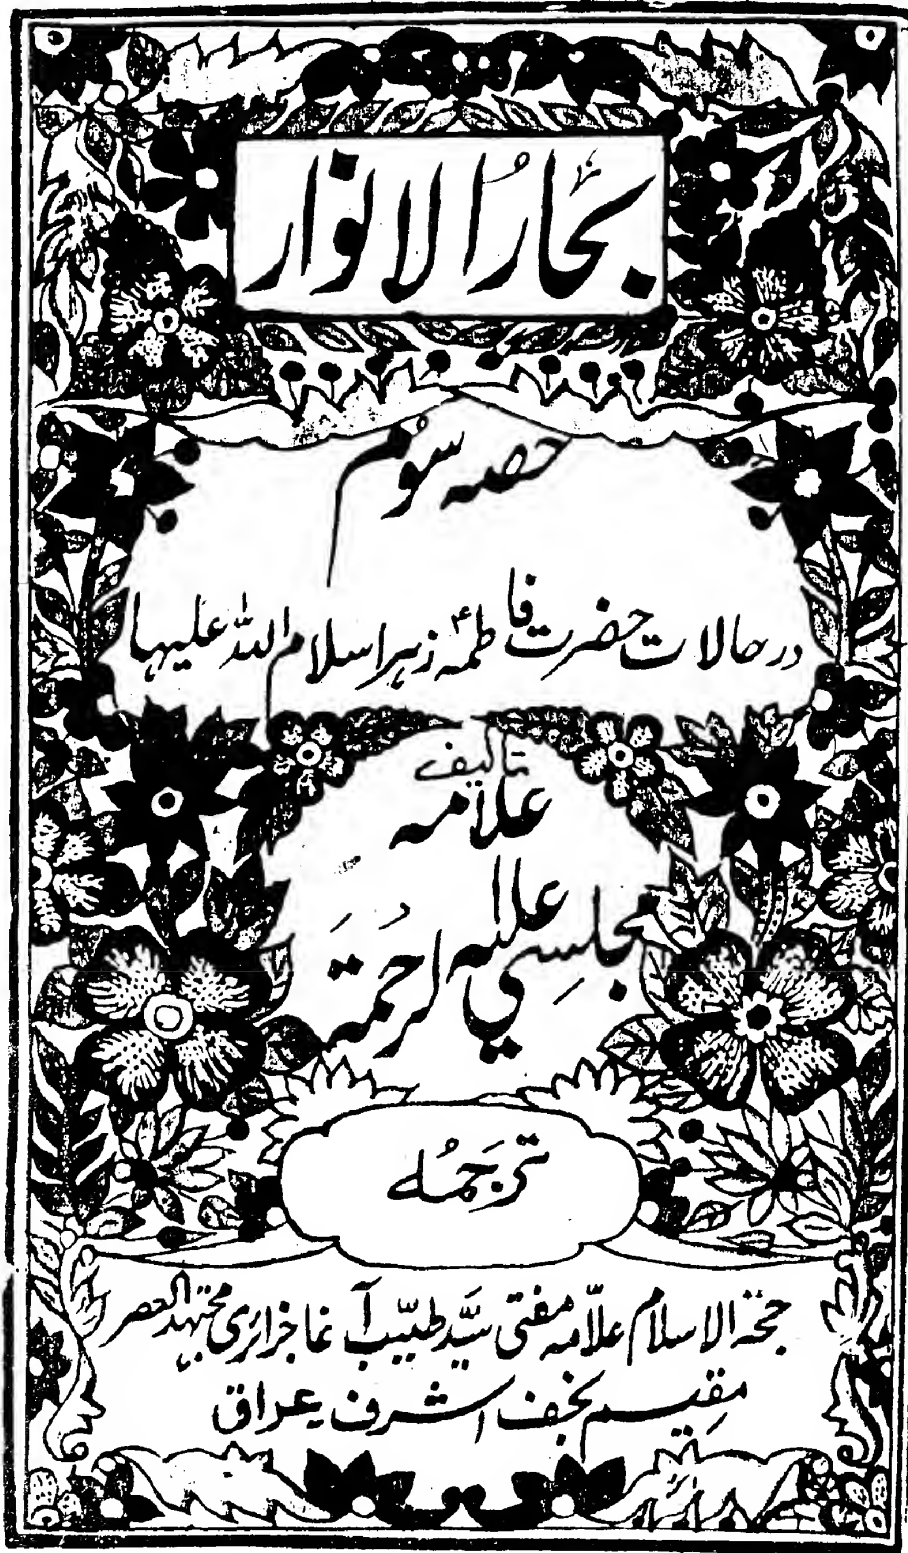 بحارُ الانوار
حصہ سوّم
در حالات حضرت فاطمہؑ زہرا سلام اللہ علیہا
تالیف
علامہ
مجلسِی علیہ الرحمُۃَ
ترجَمُہ
حجۃ الاسلام علّامہ مفتی سیَّد طیّب آغا جزائری مجتہد العصر
مقیم نجف اشرف عراق